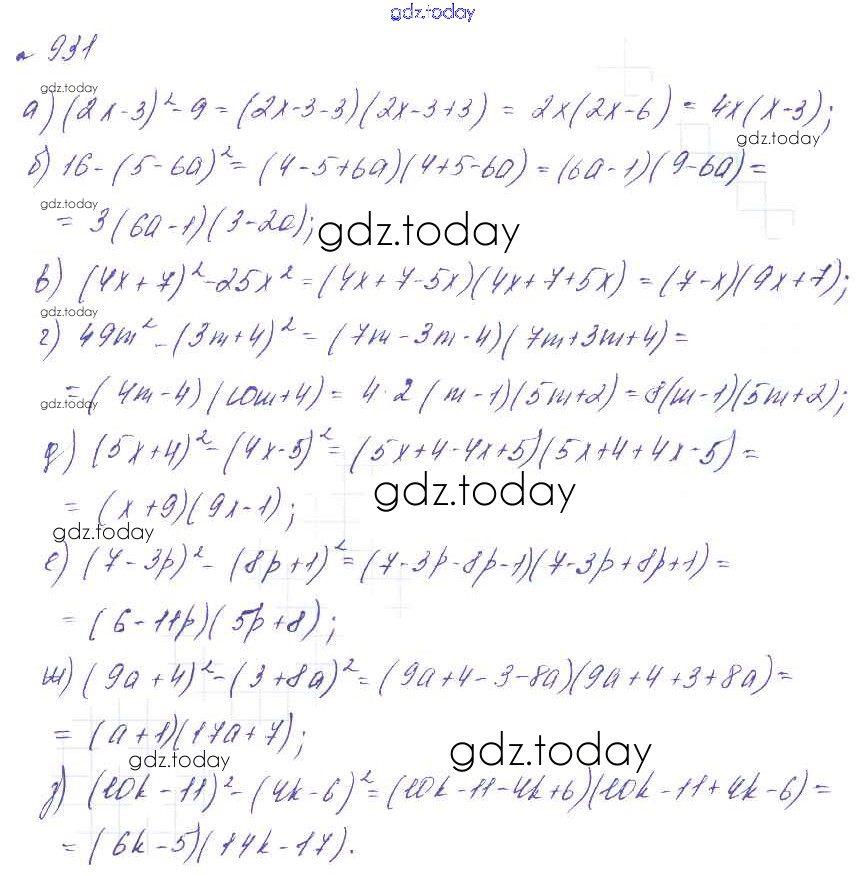 gdz.today
№ 931
gdz.today
а) (2x-3)²-9 = (2x-3-3)(2x-3+3) = 2x(2x-6) = 4x(x-3);
gdz.today
б) 16-(5-6a)² = (4-5+6a)(4+5-6a) = (6a-1)(9-6a) =
= 3(6a-1)(3-2a);
gdz.today
в) (4x+7)²-25x² = (4x+7-5x)(4x+7+5x) = (7-x)(9x+7);
gdz.today
г) 49m²-(3m+4)² = (7m-3m-4)(7m+3m+4) =
= (4m-4)(10m+4) = 4·2(m-1)(5m+2) = 8(m-1)(5m+2);
gdz.today
д) (5x+4)²-(4x-5)² = (5x+4-4x+5)(5x+4+4x-5) =
gdz.today
= (x+9)(9x-1);
gdz.today
е) (7-3p)²-(8p+1)² = (7-3p-8p-1)(7-3p+8p+1) =
= (6-11p)(5p+8);
ж) (9a+4)²-(3+8a)² = (9a+4-3-8a)(9a+4+3+8a) =
= (a+1)(17a+7);
gdz.today
gdz.today
з) (10k-11)²-(4k-6)² = (10k-11-4k+6)(10k-11+4k-6) =
= (6k-5)(14k-17).